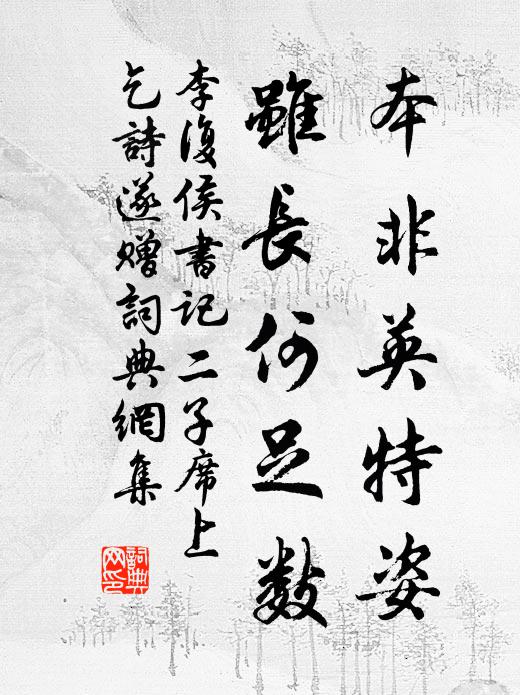 本非英特姿
雖長何足数
李復侯書記二子席上
乞詩遂赠詞典網集
詞典
网印